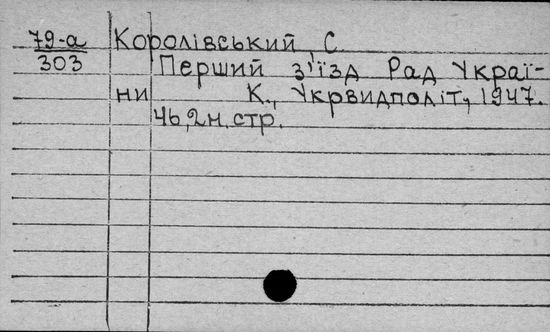 79-а Королівський С.
303 Перший з'їзд Рад Украї-
ни К., Укрвидполіт, 1947.
46, 2н. стр.